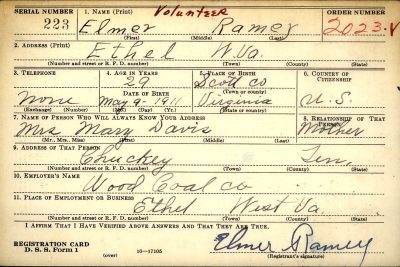 SERIAL NUMBER 1. NAME (Print) Volunteer ORDER NUMBER
223 Elmer Ramey 2023-V
(First) (Middle) (Last)
2. ADDRESS (Print)
Ethel W. Va.
(Number and street or R. F. D. number) (Town) (County) (State)
3. TELEPHONE 4. AGE IN YEARS 5. PLACE OF BIRTH 6. COUNTRY OF CITIZENSHIP
29 Scott Co
DATE OF BIRTH (Town or county)
None May 9, 1911 Virginia U.S.
(Exchange) (Number) (Mo.) (Day) (Yr.) (State or country)
7. NAME OF PERSON WHO WILL ALWAYS KNOW YOUR ADDRESS 8. RELATIONSHIP OF THAT PERSON
Mrs Mary Davis Mother
(Mr., Mrs., Miss) (First) (Middle) (Last)
9. ADDRESS OF THAT PERSON
Chuckey Ten,
(Number and street or R. F. D. number) (Town) (County) (State)
10. EMPLOYER'S NAME
Wood Coal co
11. PLACE OF EMPLOYMENT OR BUSINESS
Ethel West Va.
(Number and street or R. F. D. number) (Town) (County) (State)
I AFFIRM THAT I HAVE VERIFIED ABOVE ANSWERS AND THAT THEY ARE TRUE.
REGISTRATION CARD
D. S. S. Form 1 (over) 16—17105 Elmer Ramey
(Registrant's signature)